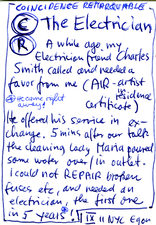 COINCIDENCE REMARQUABLE
C The Electrician
R A while ago, my
Electrician friend Charles
Smith called and needed a
favor from me (AIR-artist
in residence
* he came right away!
certificate)
He offered his service in ex-
change. 5 mins after our talk
the cleaning lady Maria poured
some water over/in outlet.
I could not REPAIR broken
fuses etc, and needed an
electrician, the first one
in 5 years*! IX NYC Egon